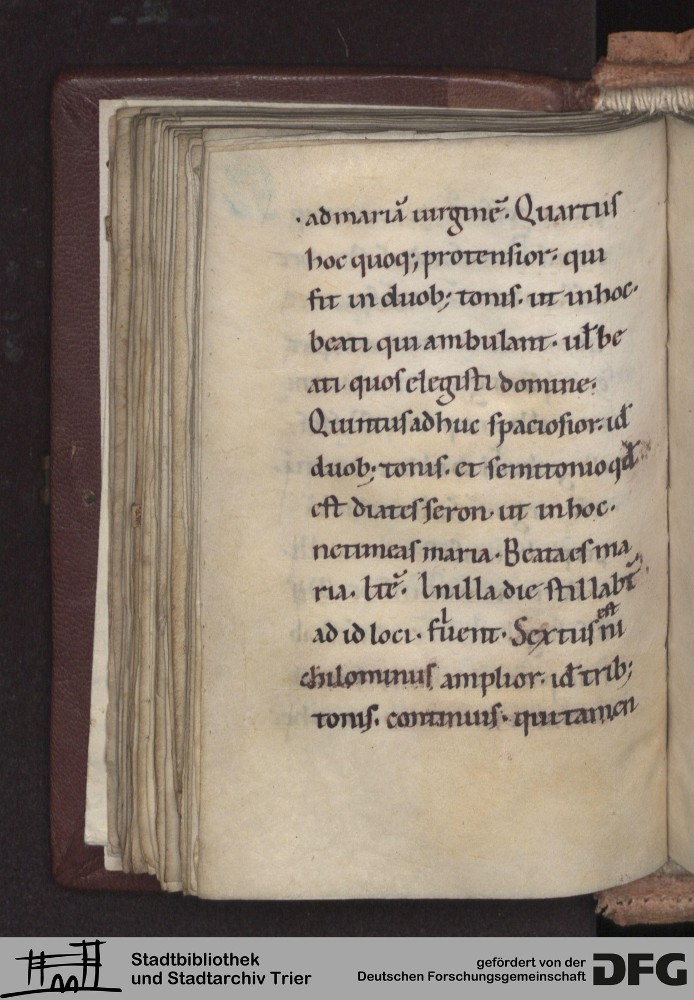 · ad mariā uirginē. Quartus
hoc quoq; protensior· qui
fit in duob; tonis· ut in hoc·
beati qui ambulant· ul̄ be
ati quos elegisti domine·
Quintus adhuc spaciosior· id̄
duob; tonis· et semitonio qd̄
est diatesseron· ut in hoc·
ne timeas maria· Beata es ma
ria· Itē· In illa die stillabt̄
ad id loci· fuͥent· Sextus
est
chilominus amplior· id̄ trib;
tonis· continuis· qui tamen
Stadtbibliothek
und Stadtarchiv Trier
gefördert von der
Deutschen Forschungsgemeinschaft
DFG